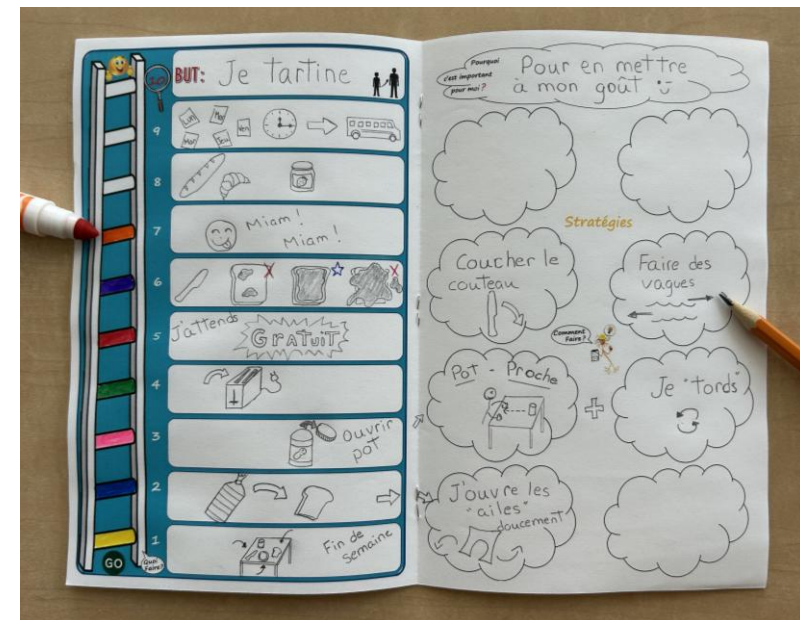 10
BUT: Je tartine
9
Lun
Mar
Mer
Jeu
Ven
8
7
Miam !
Miam !
6
5
J'attends
GRATUIT
4
3
Ouvrir
pot
2
1
Fin de
semaine
GO
Quoi
Faire?
Pourquoi
c'est important
pour moi ?
Pour en mettre
à mon goût
Stratégies
Coucher le
couteau
Faire des
vagues
Comment
Faire ?
Pot - Proche
Je "tords"
J'ouvre les
"ailes"
doucement